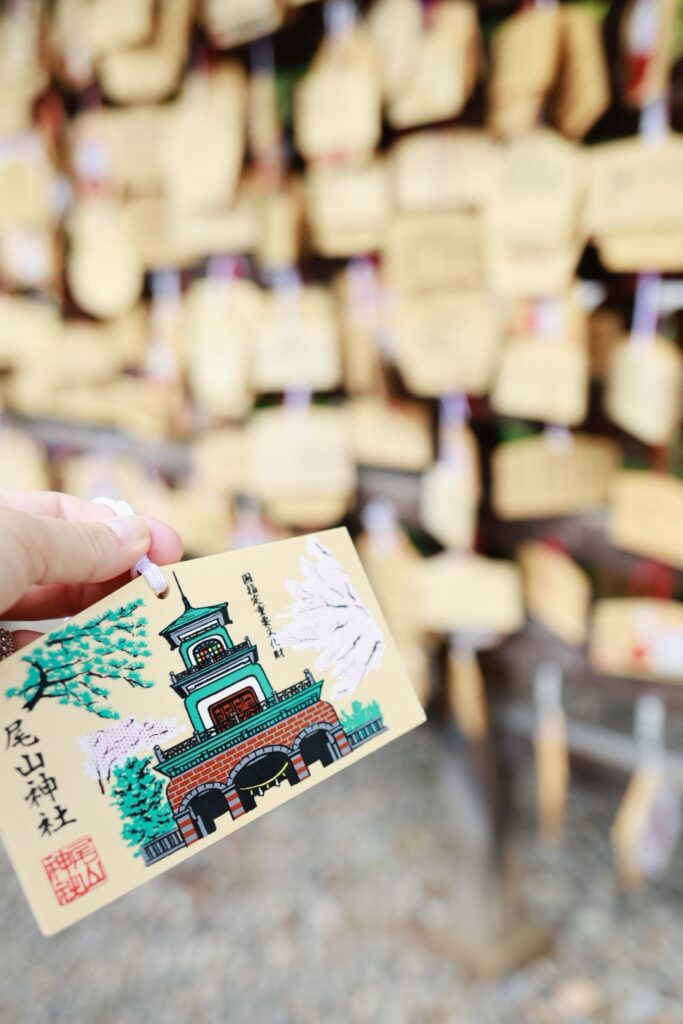 国指定重要文化財
尾山神社
尾山
神社